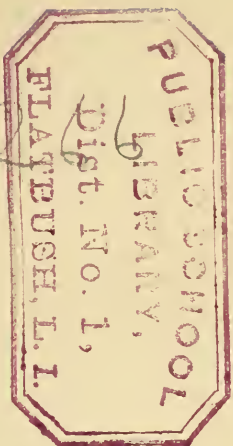 PUBLIC SCHOOL
LIBRARY,
Dist. No. 1,
FLATBUSH, L. I.